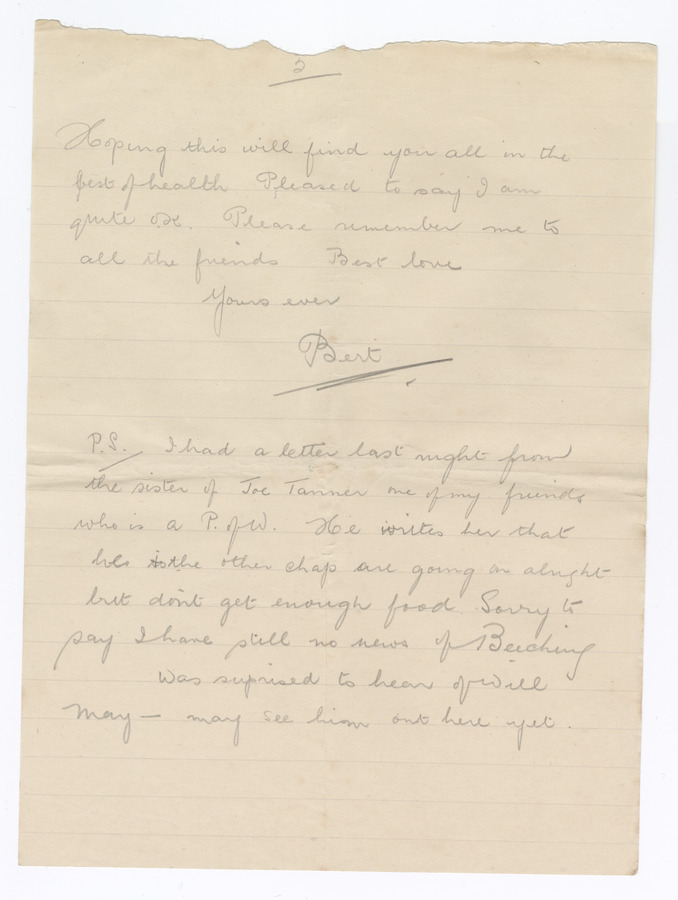 2
Hoping this will find you all in the
best of health Pleased to say I am
quite OK. Please remember me to
all the friends Best love
Yours ever
Bert
P.S. I had a letter last night from
the sister of Joe Tanner one of my friends
who is a P. of W. He writes her that
he & the other chap are going on alright
but don't get enough food. Sorry to
say I have still no news of Beeching
Was suprised to hear of Will
May — may see him out here yet.